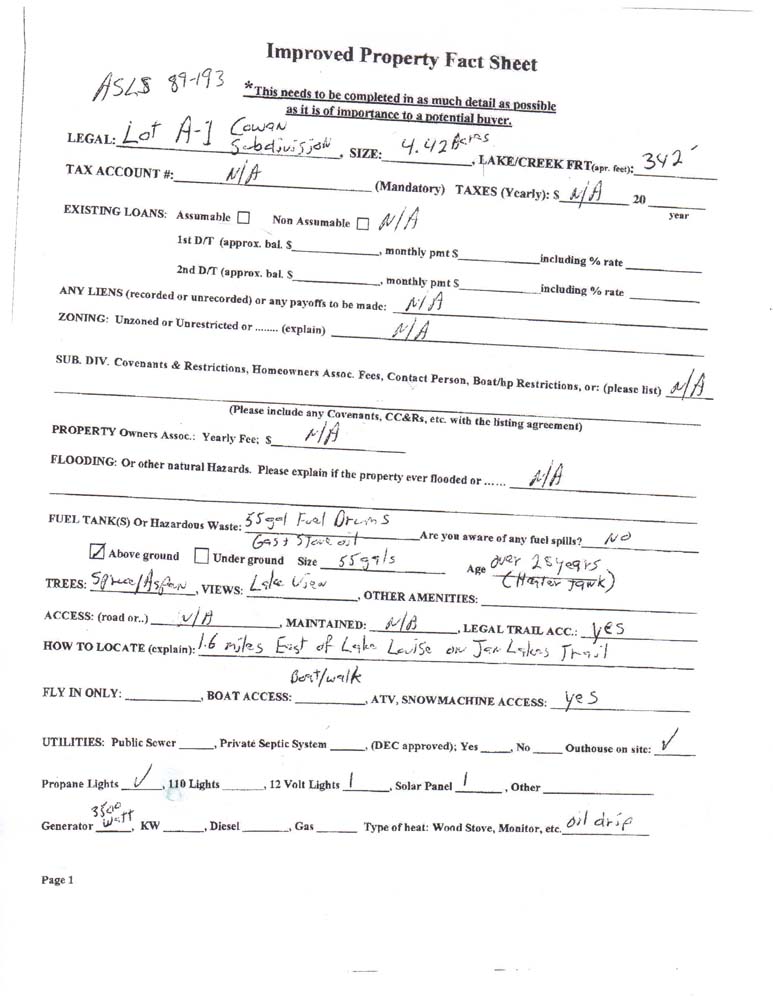 Improved Property Fact Sheet
ASLS 89-193
*This needs to be completed in as much detail as possible
as it is of importance to a potential buyer.
LEGAL: Lot A-1 Cowan Subdivision, SIZE: 4.42 Acres, LAKE/CREEK FRT(apr. feet): 342'
TAX ACCOUNT #: N/A (Mandatory) TAXES (Yearly): $ N/A 20 ____
year
EXISTING LOANS: Assumable ☐ Non Assumable ☐ N/A
1st D/T (approx. bal. $____, monthly pmt $____including % rate ____
2nd D/T (approx. bal. $____, monthly pmt $____including % rate ____
ANY LIENS (recorded or unrecorded) or any payoffs to be made: N/A
ZONING: Unzoned or Unrestricted or ........ (explain) N/A
SUB. DIV. Covenants & Restrictions, Homeowners Assoc. Fees, Contact Person, Boat/hp Restrictions, or: (please list) N/A
(Please include any Covenants, CC&Rs, etc. with the listing agreement)
PROPERTY Owners Assoc.: Yearly Fee; $ N/A
FLOODING: Or other natural Hazards. Please explain if the property ever flooded or ...... N/A
FUEL TANK(S) Or Hazardous Waste: 55 gal Fuel Drums Are you aware of any fuel spills? NO
Gas & Stove oil
☑ Above ground ☐ Under ground Size 55 gals Age over 25 years
TREES: Spruce/Aspen, VIEWS: Lake View, OTHER AMENITIES: ____
ACCESS: (road or..) N/A, MAINTAINED: N/A, LEGAL TRAIL ACC.: yes
HOW TO LOCATE (explain): 1.6 miles East of Lake Louise on Jan Lakes Trail
Boat/walk
FLY IN ONLY: ____, BOAT ACCESS: ____, ATV, SNOWMACHINE ACCESS: yes
UTILITIES: Public Sewer ____, Private Septic System ____, (DEC approved); Yes ____, No ____ Outhouse on site: ✓
Propane Lights ✓, 110 Lights ____, 12 Volt Lights 1, Solar Panel 1, Other ____
Generator 3500 watt, KW ____, Diesel ____, Gas ____ Type of heat: Wood Stove, Monitor, etc. oil drip
Page 1